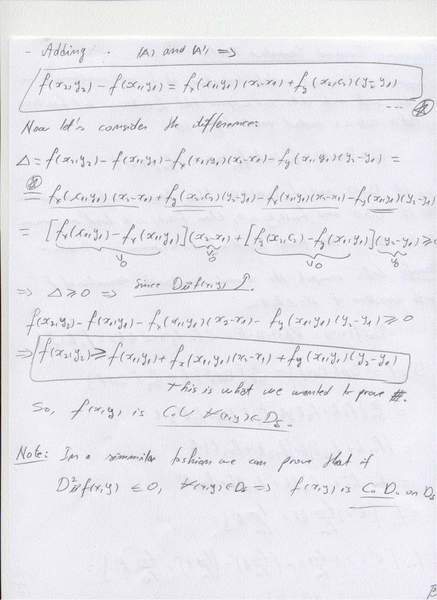 - Adding . (A) and (A') =>
f(x2,y2) - f(x1,y1) = fx(c1,y1)(x2-x1) + fy(x2,c2)(y2-y1)
Now let's consider the difference:
Δ = f(x2,y2) - f(x1,y1) - fx(x1,y1)(x2-x1) - fy(x1,y1)(y2-y1) =
= fx(c1,y1)(x2-x1) + fy(x2,c2)(y2-y1) - fx(x1,y1)(x2-x1) - fy(x1,y1)(y2-y1)
= [fx(c1,y1) - fx(x1,y1)](x2-x1) + [fy(x2,c2) - fy(x1,y1)](y2-y1) ≥ 0
=> Δ ≥ 0 => Since f(x,y) ↑.
f(x2,y2) - f(x1,y1) - fx(x1,y1)(x2-x1) - fy(x1,y1)(y2-y1) ≥ 0
=> f(x2,y2) ≥ f(x1,y1) + fx(x1,y1)(x2-x1) + fy(x1,y1)(y2-y1)
This is what we wanted to prove #.
So, f(x,y) is C.U ∀(x,y)∈Dδ.
Note: In a simmilar fashion we can prove that if
f(x,y) ≤ 0, ∀(x,y)∈Dδ => f(x,y) is C. D. on Dδ